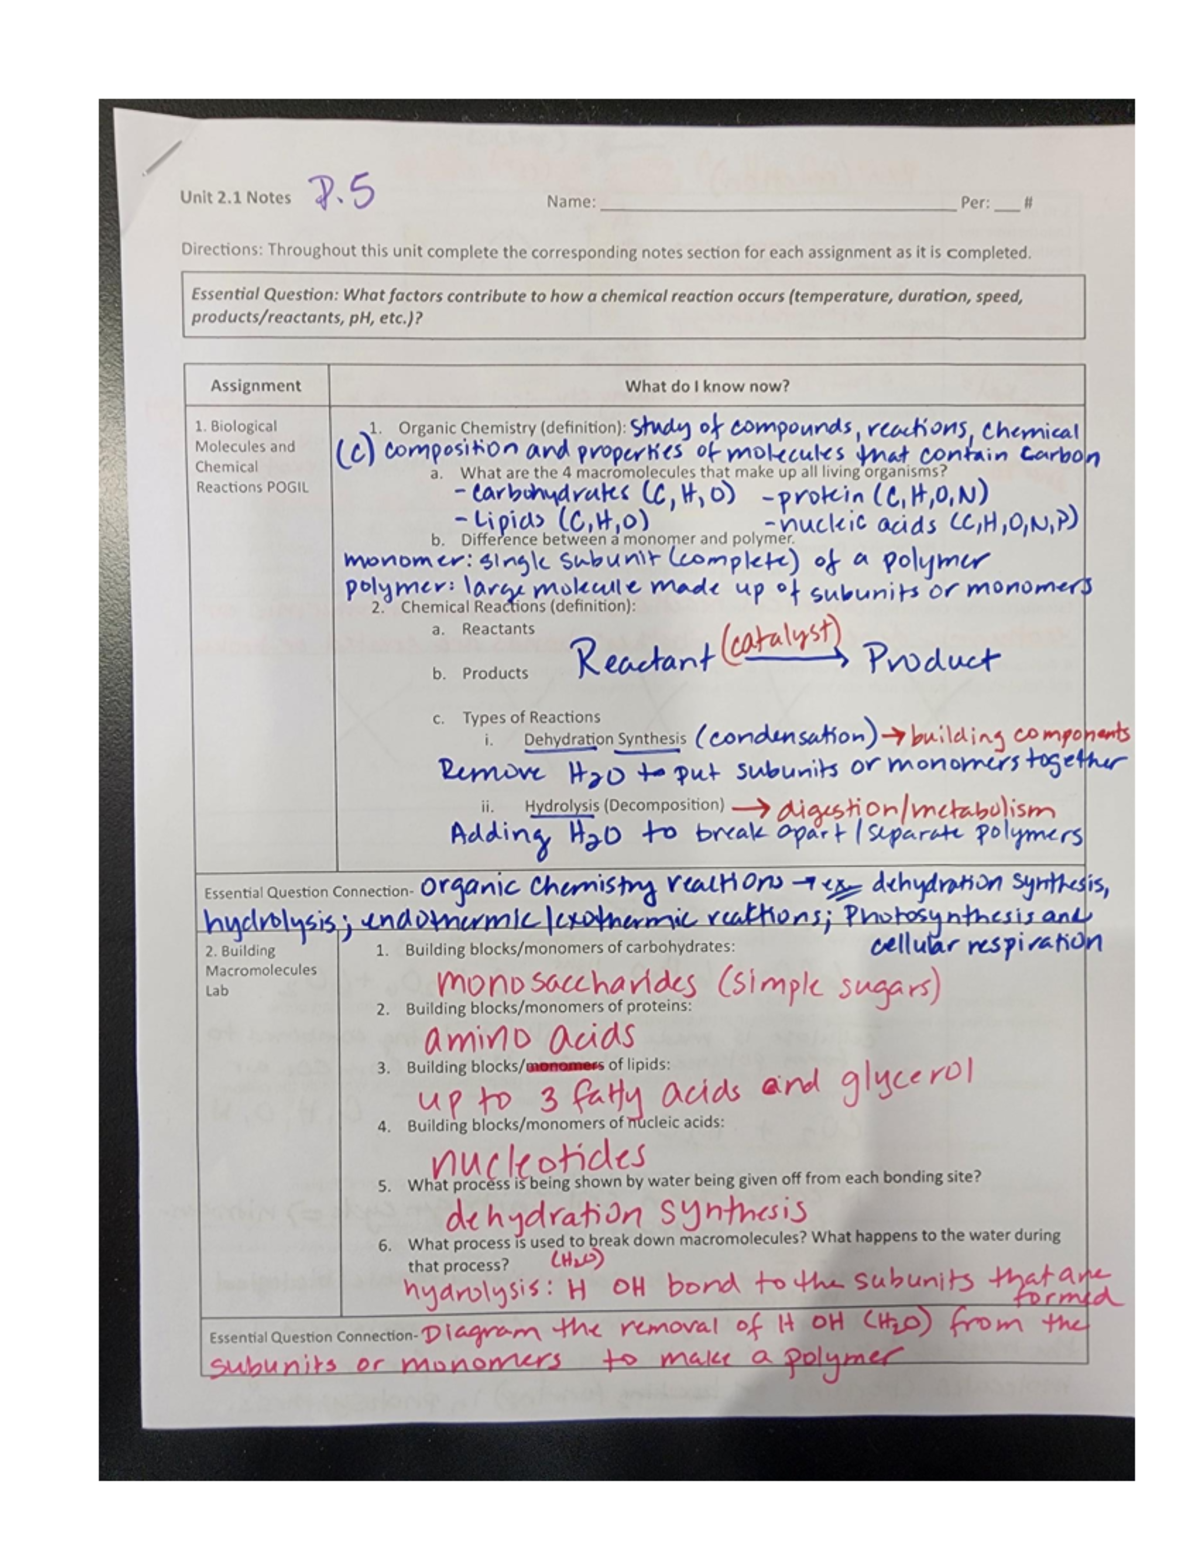 Unit 2.1 Notes P.5 Name: ____ Per: ___ #
Directions: Throughout this unit complete the corresponding notes section for each assignment as it is completed.
Essential Question: What factors contribute to how a chemical reaction occurs (temperature, duration, speed,
products/reactants, pH, etc.)?
Assignment What do I know now?
1. Biological
Molecules and
Chemical
Reactions POGIL
1. Organic Chemistry (definition): Study of compounds, reactions, chemical
(C) composition and properties of molecules that contain carbon
a. What are the 4 macromolecules that make up all living organisms?
- carbohydrates (C, H, O) - protein (C,H,O,N)
- Lipids (C,H,O) - nucleic acids (C,H,O,N,P)
b. Difference between a monomer and polymer.
monomer: single subunit (complete) of a polymer
polymer: large molecule made up of subunits or monomers
2. Chemical Reactions (definition):
a. Reactants
Reactant (catalyst) → Product
b. Products
c. Types of Reactions
i. Dehydration Synthesis (condensation) → building components
Remove H2O to put subunits or monomers together
ii. Hydrolysis (Decomposition) → digestion/metabolism
Adding H2O to break apart / separate polymers
Essential Question Connection- Organic Chemistry reactions → ex dehydration synthesis,
hydrolysis; endothermic/exothermic reactions; Photosynthesis and
cellular respiration
2. Building
Macromolecules
Lab
1. Building blocks/monomers of carbohydrates:
monosaccharides (simple sugars)
2. Building blocks/monomers of proteins:
amino acids
3. Building blocks/monomers of lipids:
up to 3 fatty acids and glycerol
4. Building blocks/monomers of nucleic acids:
nucleotides
5. What process is being shown by water being given off from each bonding site?
dehydration synthesis
6. What process is used to break down macromolecules? What happens to the water during
that process? (H2O)
hydrolysis: H OH bond to the subunits that are
formed
Essential Question Connection- Diagram the removal of H OH (H2O) from the
subunits or monomers to make a polymer